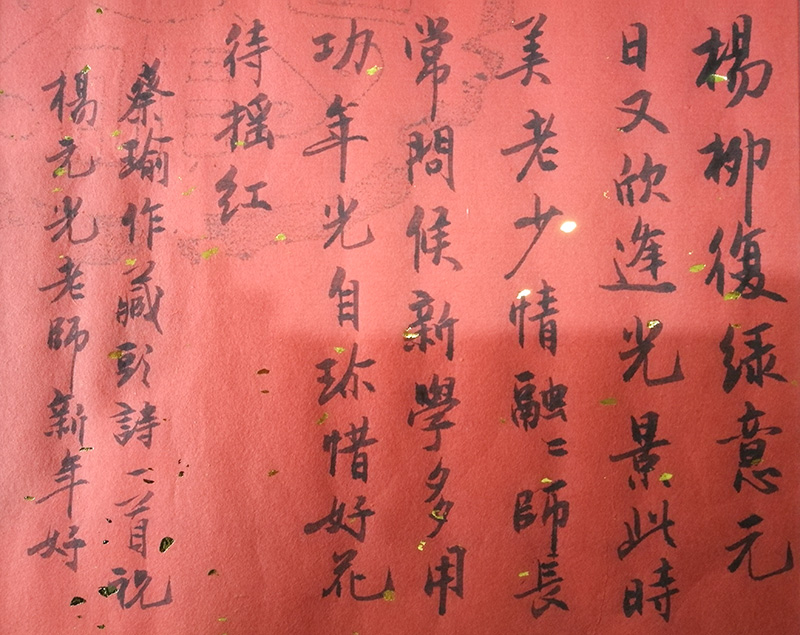 楊柳復绿意元
日又欣逢光景此時
美老少情融〻師長
常問候新學多用
功年光自珎惜好花
待摇红
蔡瑜作藏頭詩一首祝
楊元光老師新年好